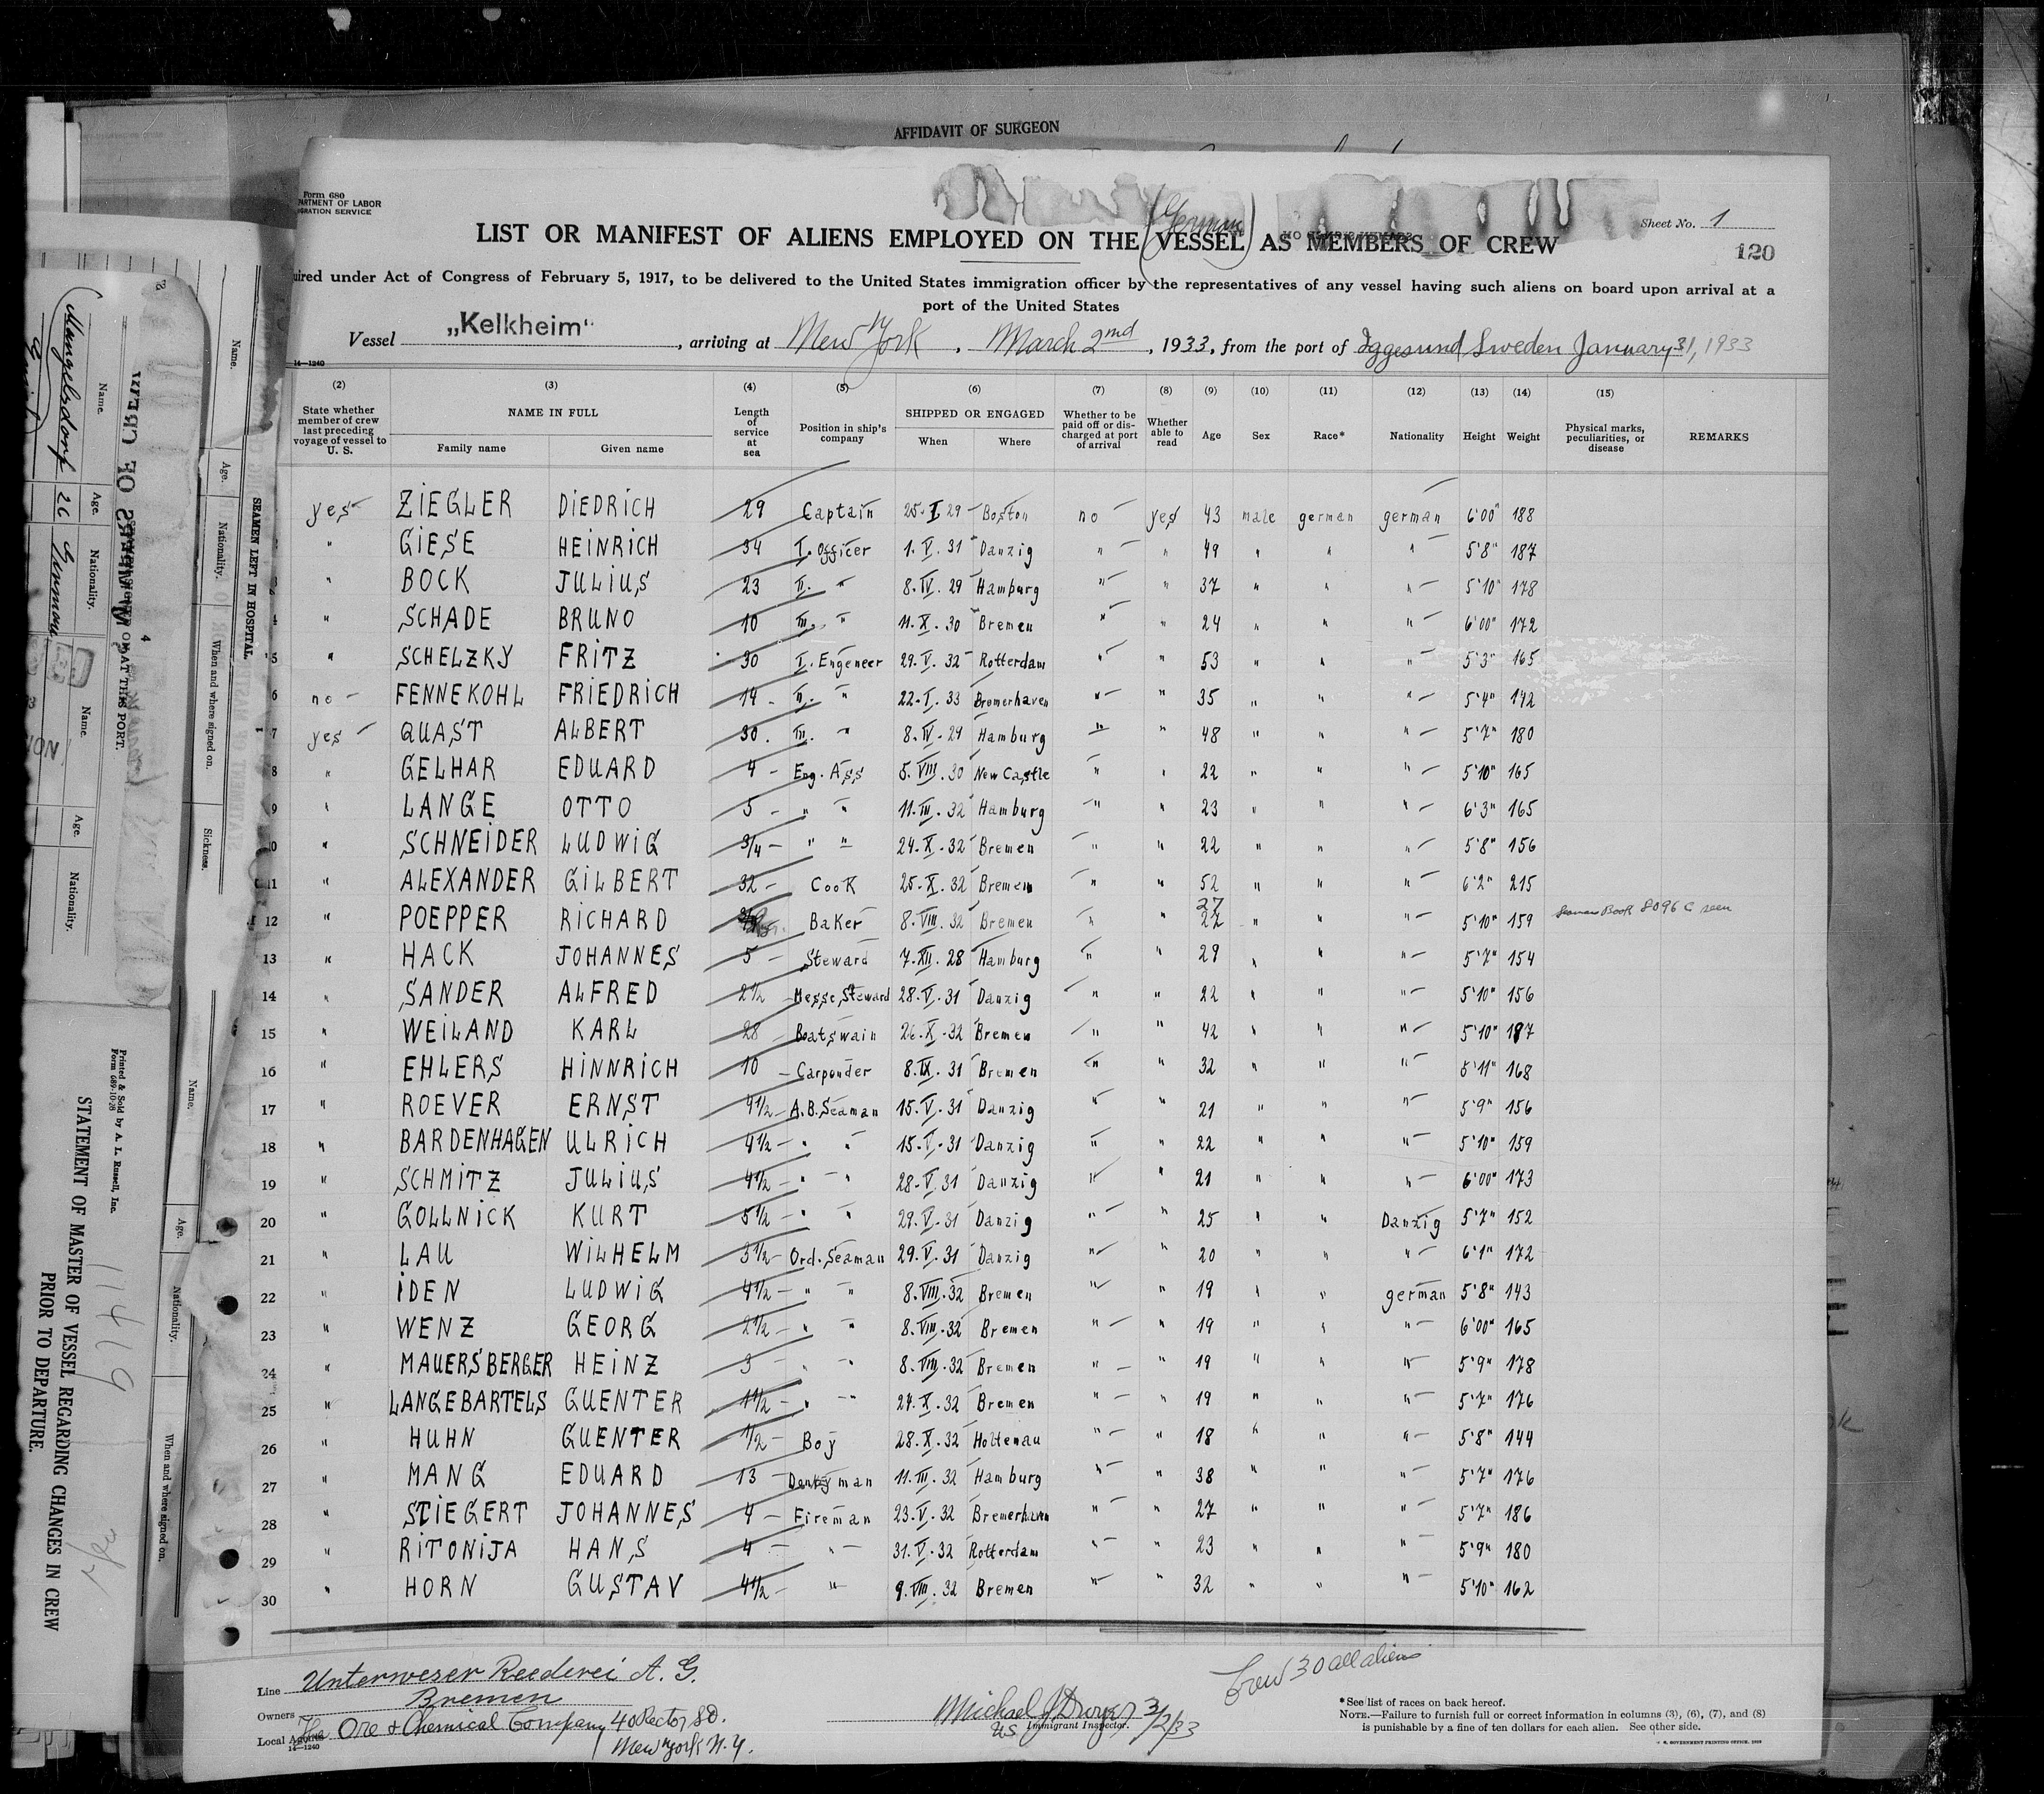 AFFIDAVIT OF SURGEON
Form 680
DEPARTMENT OF LABOR
IMMIGRATION SERVICE
(German)
Sheet No. 1
LIST OR MANIFEST OF ALIENS EMPLOYED ON THE VESSEL AS MEMBERS OF CREW
120
uired under Act of Congress of February 5, 1917, to be delivered to the United States immigration officer by the representatives of any vessel having such aliens on board upon arrival at a
port of the United States
Vessel „Kelkheim“, arriving at New York, March 2nd, 1933, from the port of Iggesund Sweden January 31, 1933
14—1240
(2) (3) (4) (5) (6) (7) (8) (9) (10) (11) (12) (13) (14) (15)
State whether member of crew last preceding voyage of vessel to U. S. NAME IN FULL Family name Given name Length of service at sea Position in ship's company SHIPPED OR ENGAGED When Where Whether to be paid off or discharged at port of arrival Whether able to read Age Sex Race* Nationality Height Weight Physical marks, peculiarities, or disease REMARKS
yes ZIEGLER DIEDRICH 29 Captain 25. I 29 Boston no yes 43 male german german 6'00" 188
" GIESE HEINRICH 34 I. Officer 1. V. 31 Danzig " " 49 " " " 5'8" 187
3 " BOCK JULIUS 23 II. " 8. IV. 29 Hamburg " " 37 " " " 5'10" 178
4 " SCHADE BRUNO 10 III. " 11. X. 30 Bremen " " 24 " " " 6'00" 172
5 " SCHELZKY FRITZ 30 I. Engeneer 29. V. 32 Rotterdam " " 53 " " " 5'3" 165
6 no FENNEKOHL FRIEDRICH 14 II. " 22. I. 33 Bremerhaven " " 35 " " " 5'4" 142
7 yes QUAST ALBERT 30. III. " 8. IV. 29 Hamburg " " 48 " " " 5'7" 180
8 " GELHAR EDUARD 4 Eng. Ass 5. VIII. 30 New Castle " " 22 " " " 5'10" 165
9 " LANGE OTTO 5 " " 11. III. 32 Hamburg " " 23 " " " 6'3" 165
10 " SCHNEIDER LUDWIG 3/4 " " 24. X. 32 Bremen " " 22 " " " 5'8" 156
11 " ALEXANDER GILBERT 32 Cook 25. X. 32 Bremen " " 52 " " " 6'2" 215
12 " POEPPER RICHARD Baker 8. VIII. 32 Bremen " " 27 22 " " " 5'10" 159 Seamans Book 8096 C seen
13 " HACK JOHANNES 5 Steward 7. XII. 28 Hamburg " " 29 " " " 5'7" 154
14 " SANDER ALFRED 2 1/2 Messe Steward 28. V. 31 Danzig " " 22 " " " 5'10" 156
15 " WEILAND KARL 28 Boatswain 26. X. 32 Bremen " " 42 " " " 5'10" 187
16 " EHLERS HINNRICH 10 Carpender 8. IX. 31 Bremen " " 32 " " " 5'11" 168
17 " ROEVER ERNST 4 1/2 A.B. Seaman 15. V. 31 Danzig " " 21 " " " 5'9" 156
18 " BARDENHAGEN ULRICH 4 1/2 " " 15. V. 31 Danzig " " 22 " " " 5'10" 159
19 " SCHMITZ JULIUS 4 1/2 " " 28. V. 31 Danzig " " 21 " " " 6'00" 173
20 " GOLLNICK KURT 5 1/2 " " 29. V. 31 Danzig " " 25 " " Danzig 5'7" 152
21 " LAU WILHELM 3 1/2 Ord. Seaman 29. V. 31 Danzig " " 20 " " " 6'1" 172
22 " IDEN LUDWIG 4 1/2 " " 8. VIII. 32 Bremen " " 19 " " german 5'8" 143
23 " WENZ GEORG 2 1/2 " " 8. VIII. 32 Bremen " " 19 " " " 6'00" 165
24 " MAUERSBERGER HEINZ 3 " " 8. VIII. 32 Bremen " " 19 " " " 5'9" 178
25 " LANGEBARTELS GUENTER 1 1/2 " " 24. X. 32 Bremen " " 19 " " " 5'7" 176
26 " HUHN GUENTER 1/2 Boy 28. X. 32 Holtenau " " 18 " " " 5'8" 144
27 " MANG EDUARD 13 Donkyman 11. III. 32 Hamburg " " 38 " " " 5'7" 176
28 " STIEGERT JOHANNES 4 Fireman 23. V. 32 Bremerhaven " " 27 " " " 5'7" 186
29 " RITONIJA HANS 4 " 31. V. 32 Rotterdam " " 23 " " " 5'9" 180
30 " HORN GUSTAV 4 1/2 " 9. VIII. 32 Bremen " " 32 " " " 5'10" 162
Crew 30 all aliens
Line Unterweser Reederei A. G.
Bremen
Owners
Local Agents The Ore & Chemical Company 40 Rector St.
New York N. Y.
14—1240
Michael J Dwyer 3/2/33
US Immigrant Inspector.
*See list of races on back hereof.
NOTE.—Failure to furnish full or correct information in columns (3), (6), (7), and (8)
is punishable by a fine of ten dollars for each alien. See other side.
U. S. GOVERNMENT PRINTING OFFICE
Name. Age. Nationality.
Mangelsdorf 26 German
SEAMEN LEFT IN HOSPITAL
Name. Age. Nationality. When and where signed on. Sickness.
Name. Age. Nationality.
AT THIS PORT.
Printed & Sold by A. L. Russell, Inc.
Form 689-10-28
STATEMENT OF MASTER OF VESSEL REGARDING CHANGES IN CREW
PRIOR TO DEPARTURE.
11419
Name. Age. Nationality. When and where signed on.